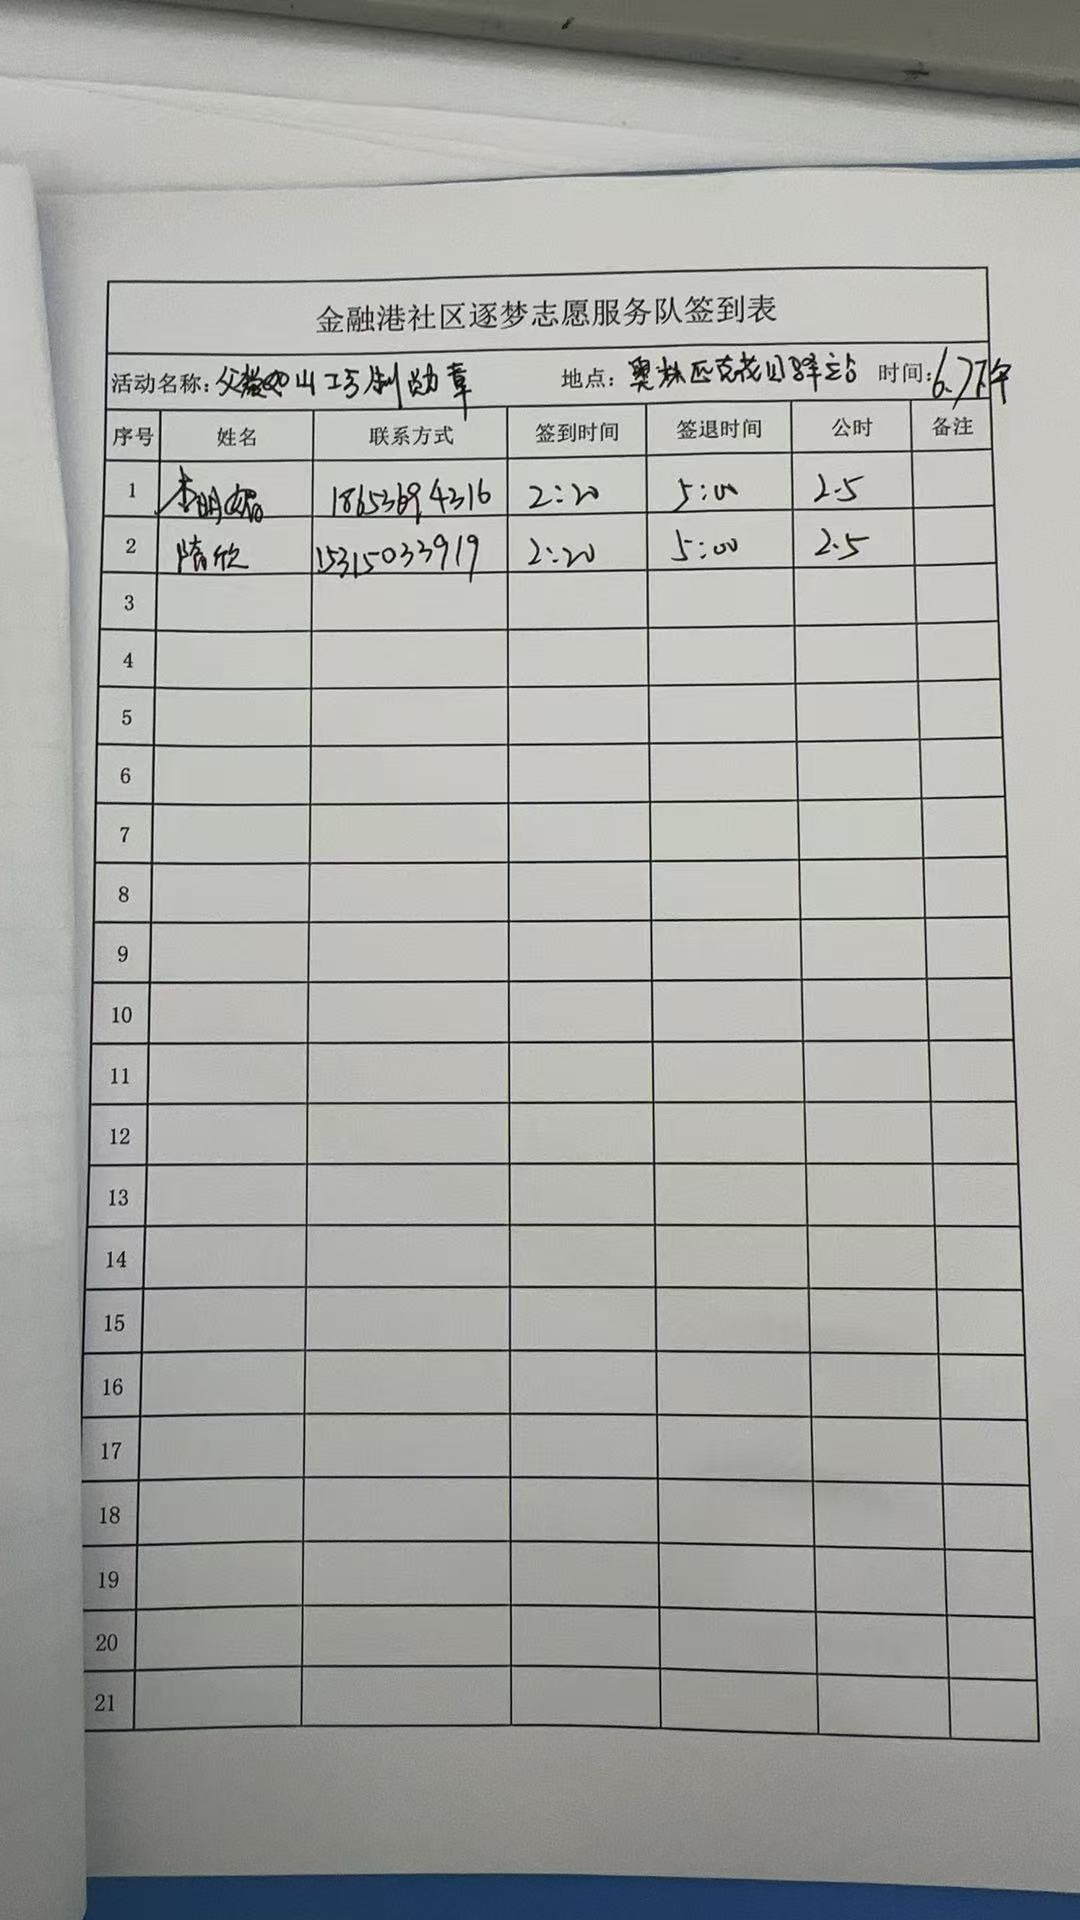 金融港社区逐梦志愿服务队签到表
活动名称：父爱如山 巧制勋章 地点：奥林匹克花园驿站 时间：6.7下午
序号 姓名 联系方式 签到时间 签退时间 公时 备注
1 李明媚 18653694316 2:20 5:00 2.5
2 隋欣 15315033919 2:20 5:00 2.5
3
4
5
6
7
8
9
10
11
12
13
14
15
16
17
18
19
20
21